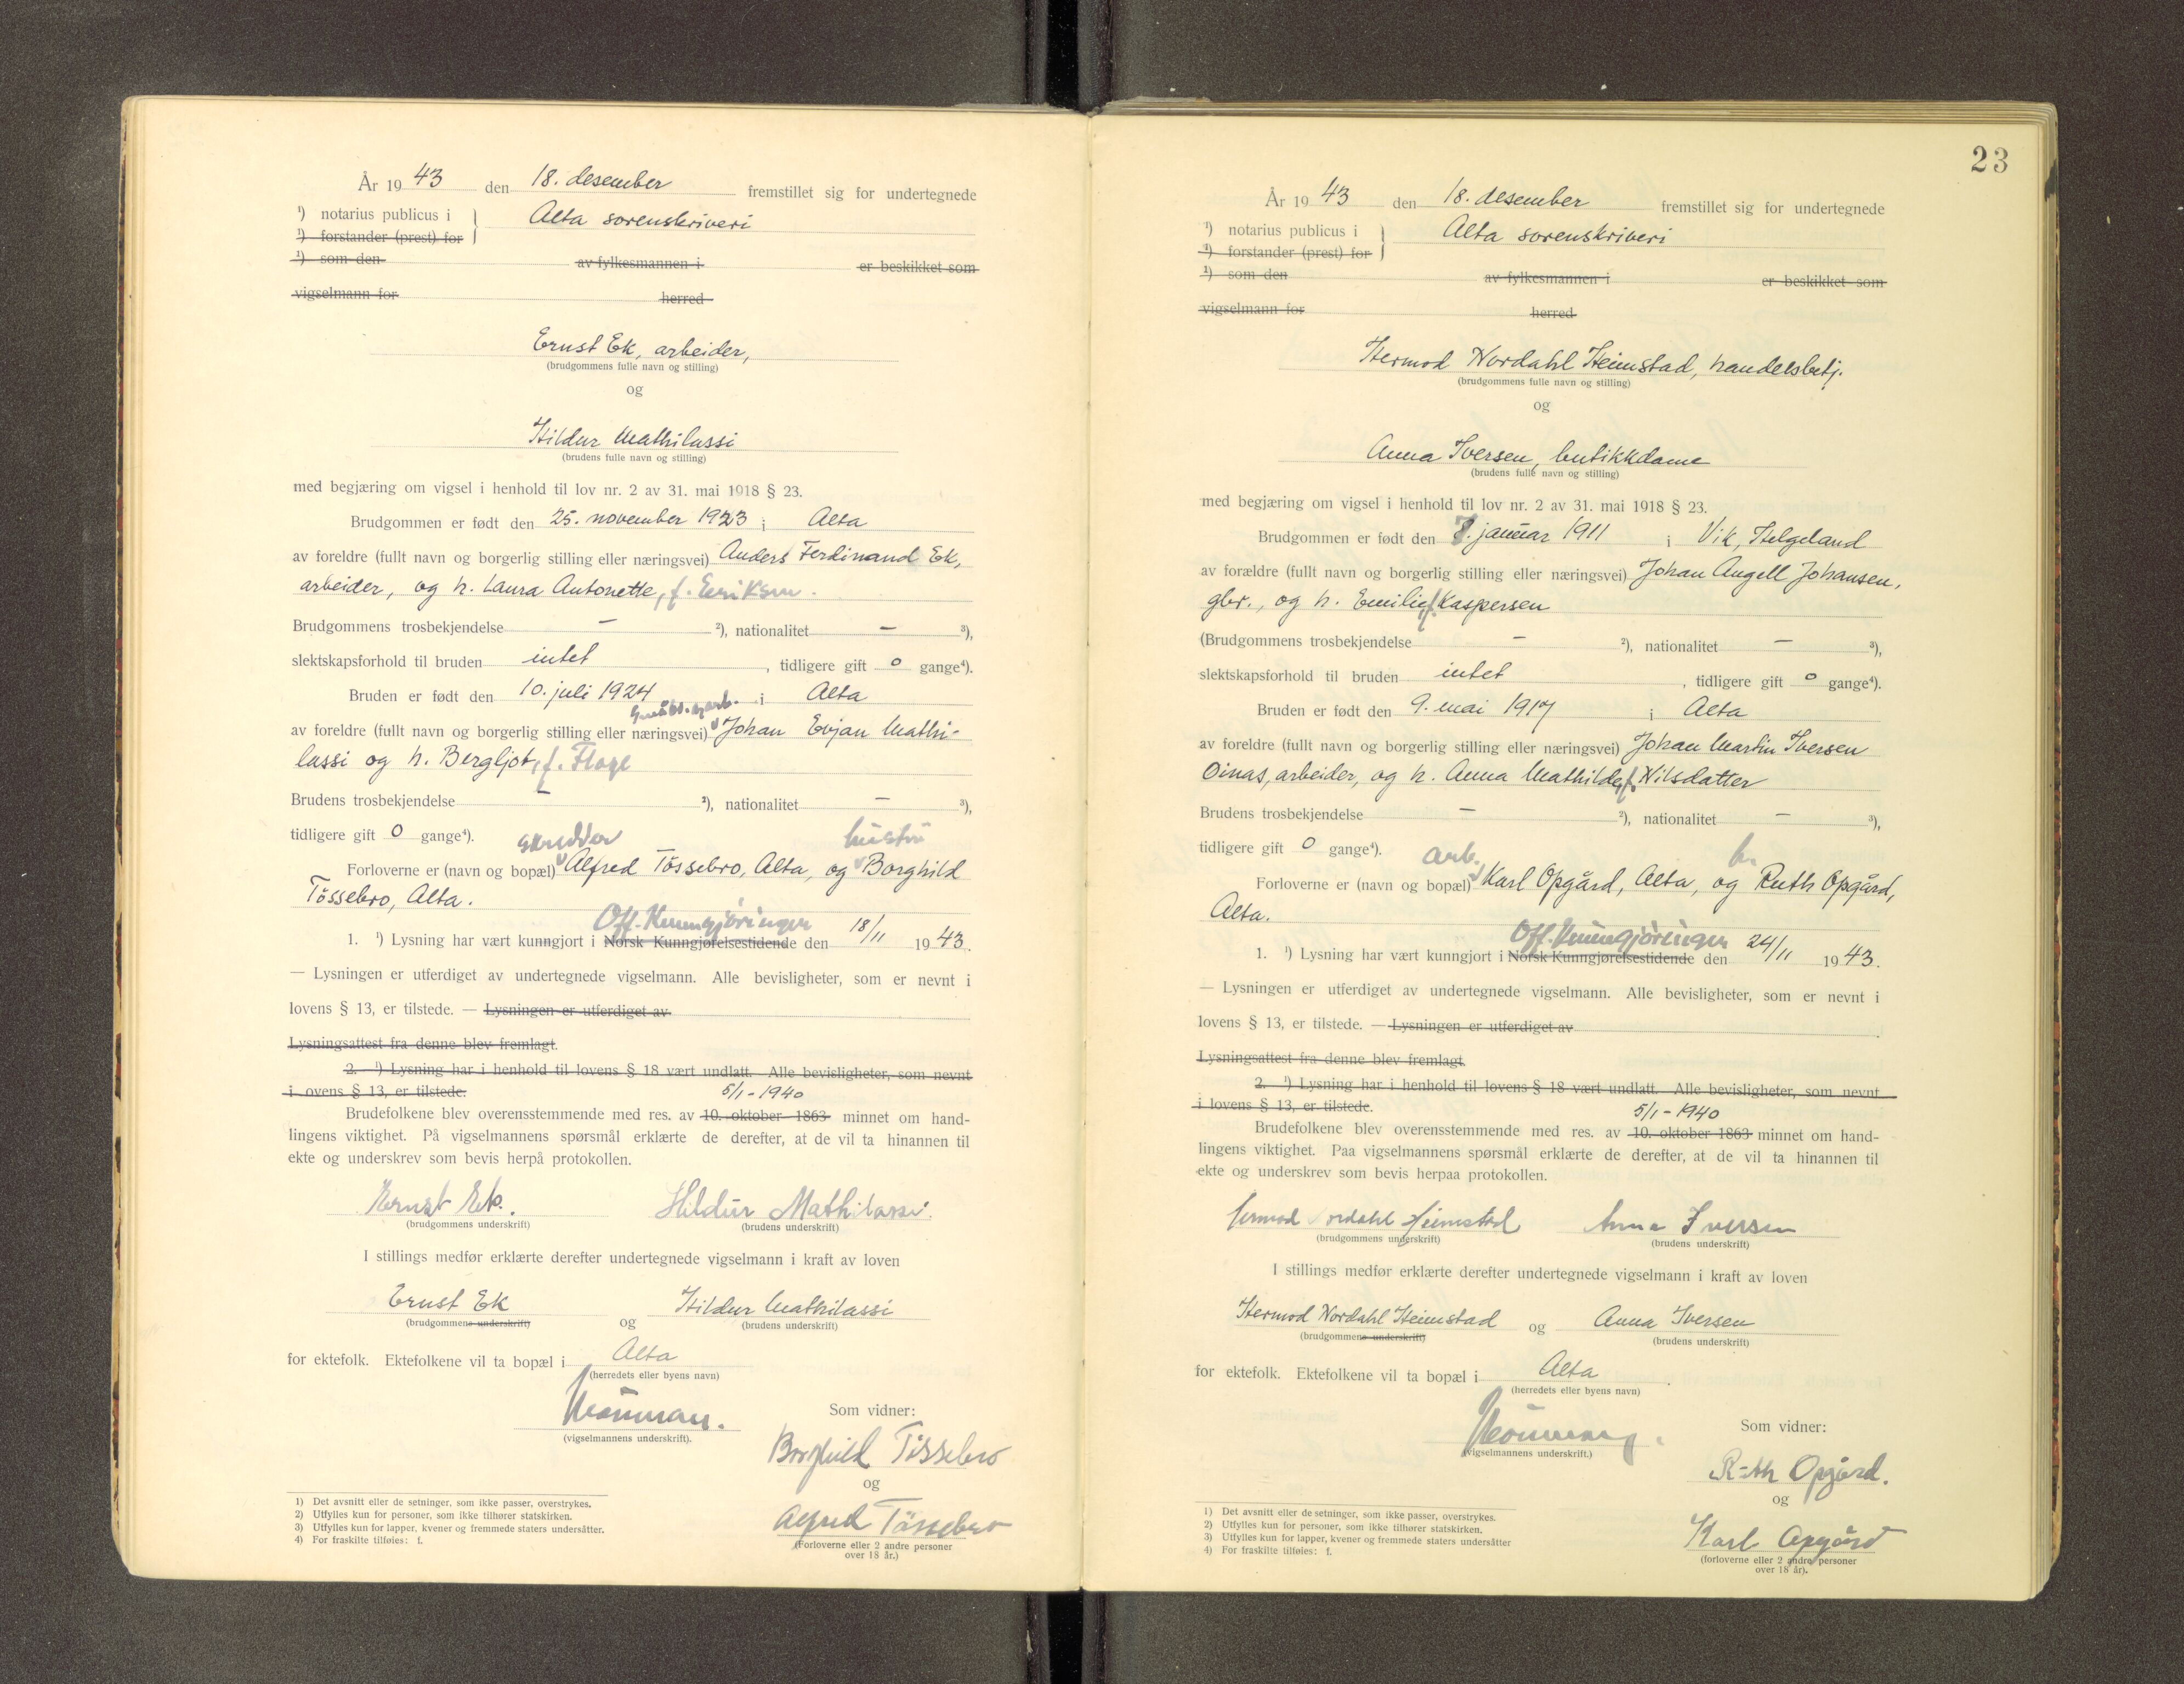 År 1943 den 18. desember fremstillet sig for undertegnede
¹) notarius publicus i } Alta sorenskriveri
¹) forstander (prest) for
¹) som den av fylkesmannen i er beskikket som
vigselmann for herred
Ernst Ek, arbeider,
(brudgommens fulle navn og stilling)
og
Hildur Mathilassi
(brudens fulle navn og stilling)
med begjæring om vigsel i henhold til lov nr. 2 av 31. mai 1918 § 23.
Brudgommen er født den 25. november 1923 i Alta
av foreldre (fullt navn og borgerlig stilling eller næringsvei) Anders Ferdinand Ek,
arbeider, og h. Laura Antonette, f. Eriksen.
Brudgommens trosbekjendelse – ²), nationalitet – ³),
slektskapsforhold til bruden intet, tidligere gift 0 gange⁴).
Bruden er født den 10. juli 1924 i Alta
av foreldre (fullt navn og borgerlig stilling eller næringsvei) Johan Evjan Mathi-
lassi og h. Bergljot, f. Flage
Brudens trosbekjendelse – ²), nationalitet – ³),
tidligere gift 0 gange⁴). skredder hustru
Forloverne er (navn og bopæl) Alfred Tössebro, Alta, og Borghild
Tössebro, Alta.
Off. Kunngjöringer
1. ¹) Lysning har vært kunngjort i Norsk Kunngjørelsestidende den 18/11 1943.
— Lysningen er utferdiget av undertegnede vigselmann. Alle bevisligheter, som er nevnt i
lovens § 13, er tilstede. — Lysningen er utferdiget av
Lysningsattest fra denne blev fremlagt.
2. ¹) Lysning har i henhold til lovens § 18 vært undlatt. Alle bevisligheter, som nevnt
i ovens § 13, er tilstede. 5/1-1940
Brudefolkene blev overensstemmende med res. av 10. oktober 1863 minnet om hand-
lingens viktighet. På vigselmannens spørsmål erklærte de derefter, at de vil ta hinannen til
ekte og underskrev som bevis herpå protokollen.
Ernst Ek. Hildur Mathilassi.
(brudgommens underskrift) (brudens underskrift)
I stillings medfør erklærte derefter undertegnede vigselmann i kraft av loven
Ernst Ek og Hildur Mathilassi
(brudgommens underskrift) (brudens underskrift)
for ektefolk. Ektefolkene vil ta bopæl i Alta
(herredets eller byens navn)
(vigselmannens underskrift).
Som vidner:
Borghild Tössebro
og
Alfred Tössebro
(Forloverne eller 2 andre personer
over 18 år.)
1) Det avsnitt eller de setninger, som ikke passer, overstrykes.
2) Utfylles kun for personer, som ikke tilhører statskirken.
3) Utfylles kun for lapper, kvener og fremmede staters undersåtter.
4) For fraskilte tilføies: f.
23
År 1943 den 18. desember fremstillet sig for undertegnede
¹) notarius publicus i } Alta sorenskriveri
¹) forstander (prest) for
¹) som den av fylkesmannen i er beskikket som
vigselmann for herred
Hermod Nordahl Heimstad, handelsbetj.
(brudgommens fulle navn og stilling)
og
Anna Iversen, butikkdame
(brudens fulle navn og stilling)
med begjæring om vigsel i henhold til lov nr. 2 av 31. mai 1918 § 23.
Brudgommen er født den januar 1911 i Vik, Helgeland
av forældre (fullt navn og borgerlig stilling eller næringsvei) Johan Angell Johansen,
gbr., og h. Emilie, f. Kaspersen
(Brudgommens trosbekjendelse – ²), nationalitet – ³),
slektskapsforhold til bruden intet, tidligere gift 0 gange⁴).
Bruden er født den 9. mai 1917 i Alta
av foreldre (fullt navn og borgerlig stilling eller næringsvei) Johan Martin Iversen
Oinas, arbeider, og h. Anna Mathilde, f. Nilsdatter
Brudens trosbekjendelse – ²), nationalitet – ³),
tidligere gift 0 gange⁴). arb. h.
Forloverne er (navn og bopæl) Karl Opgård, Alta, og Ruth Opgård,
Alta.
Off. Kunngjöringer
1. ¹) Lysning har vært kunngjort i Norsk Kunngjørelsestidende den 24/11 1943.
— Lysningen er utferdiget av undertegnede vigselmann. Alle bevisligheter, som er nevnt i
lovens § 13, er tilstede. — Lysningen er utferdiget av
Lysningsattest fra denne blev fremlagt.
2. ¹) Lysning har i henhold til lovens § 18 vært undlatt. Alle bevisligheter, som nevnt
i lovens § 13, er tilstede. 5/1-1940
Brudefolkene blev overensstemmende med res. av 10. oktober 1863 minnet om hand-
lingens viktighet. Paa vigselmannens spørsmål erklærte de derefter, at de vil ta hinannen til
ekte og underskrev som bevis herpaa protokollen.
Hermod Nordahl Heimstad Anna Iversen
(brudgommens underskrift) (brudens underskrift)
I stillings medfør erklærte derefter undertegnede vigselmann i kraft av loven
Hermod Nordahl Heimstad og Anna Iversen
(brudgommens underskrift) (brudens underskrift)
for ektefolk. Ektefolkene vil ta bopæl i Alta.
(herredets eller byens navn)
(vigselmannens underskrift.)
Som vidner:
Ruth Opgård.
og
Karl Opgård
(forloverne eller 2 andre personer
over 18 år).
1) Det avsnitt eller de setninger, som ikke passer, overstrykes.
2) Utfylles kun for personer, som ikke tilhører statskirken.
3) Utfylles kun for lapper, kvener og fremmede staters undersåtter
4) For fraskilte tilføies: f.